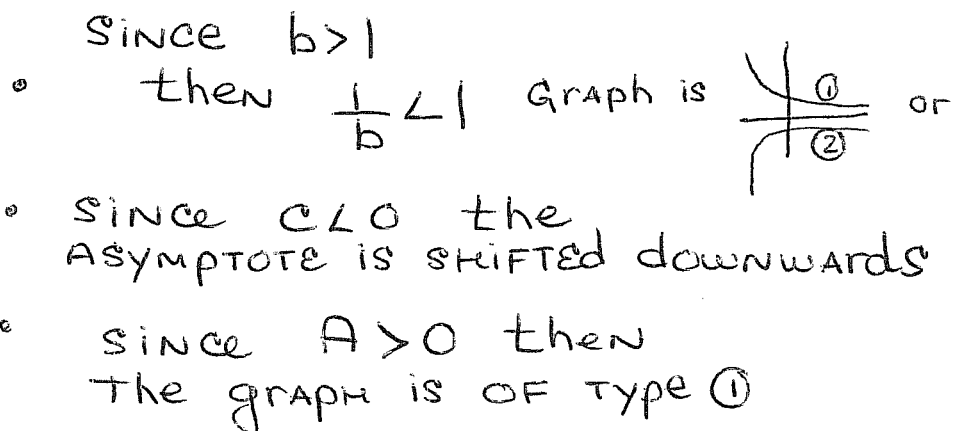 SiNce b>1
• theN 1/b <1 GrAph is ① or
②
• SiNce C<0 the
ASYMPTOTE is SHiFTEd dowNwArds
• SiNce A>0 theN
The grAPH is OF TYpe ①